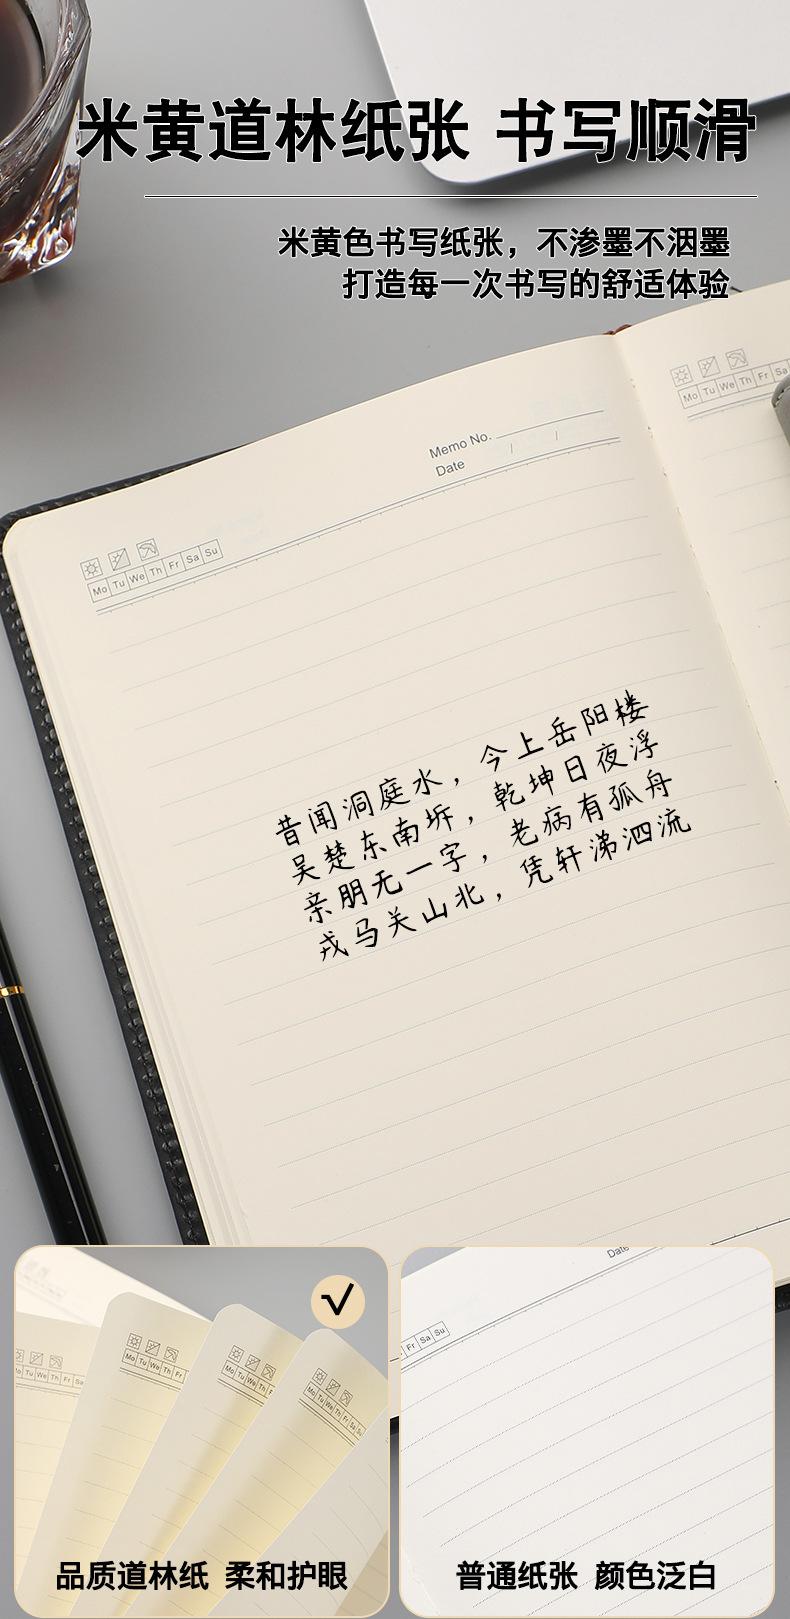 米黄道林纸张 书写顺滑
米黄色书写纸张，不渗墨不洇墨
打造每一次书写的舒适体验
Memo No.
Date / /
Mo Tu We Th Fr Sa Su
Mo Tu We Th Fr Sa
昔闻洞庭水，今上岳阳楼
吴楚东南坼，乾坤日夜浮
亲朋无一字，老病有孤舟
戎马关山北，凭轩涕泗流
Mo Tu We Th Fr Sa
Mo Tu We Th Fr
Mo Tu We Th F
Mo Tu We Th Fr Sa Su
品质道林纸 柔和护眼
Date
Fr Sa Su
普通纸张 颜色泛白